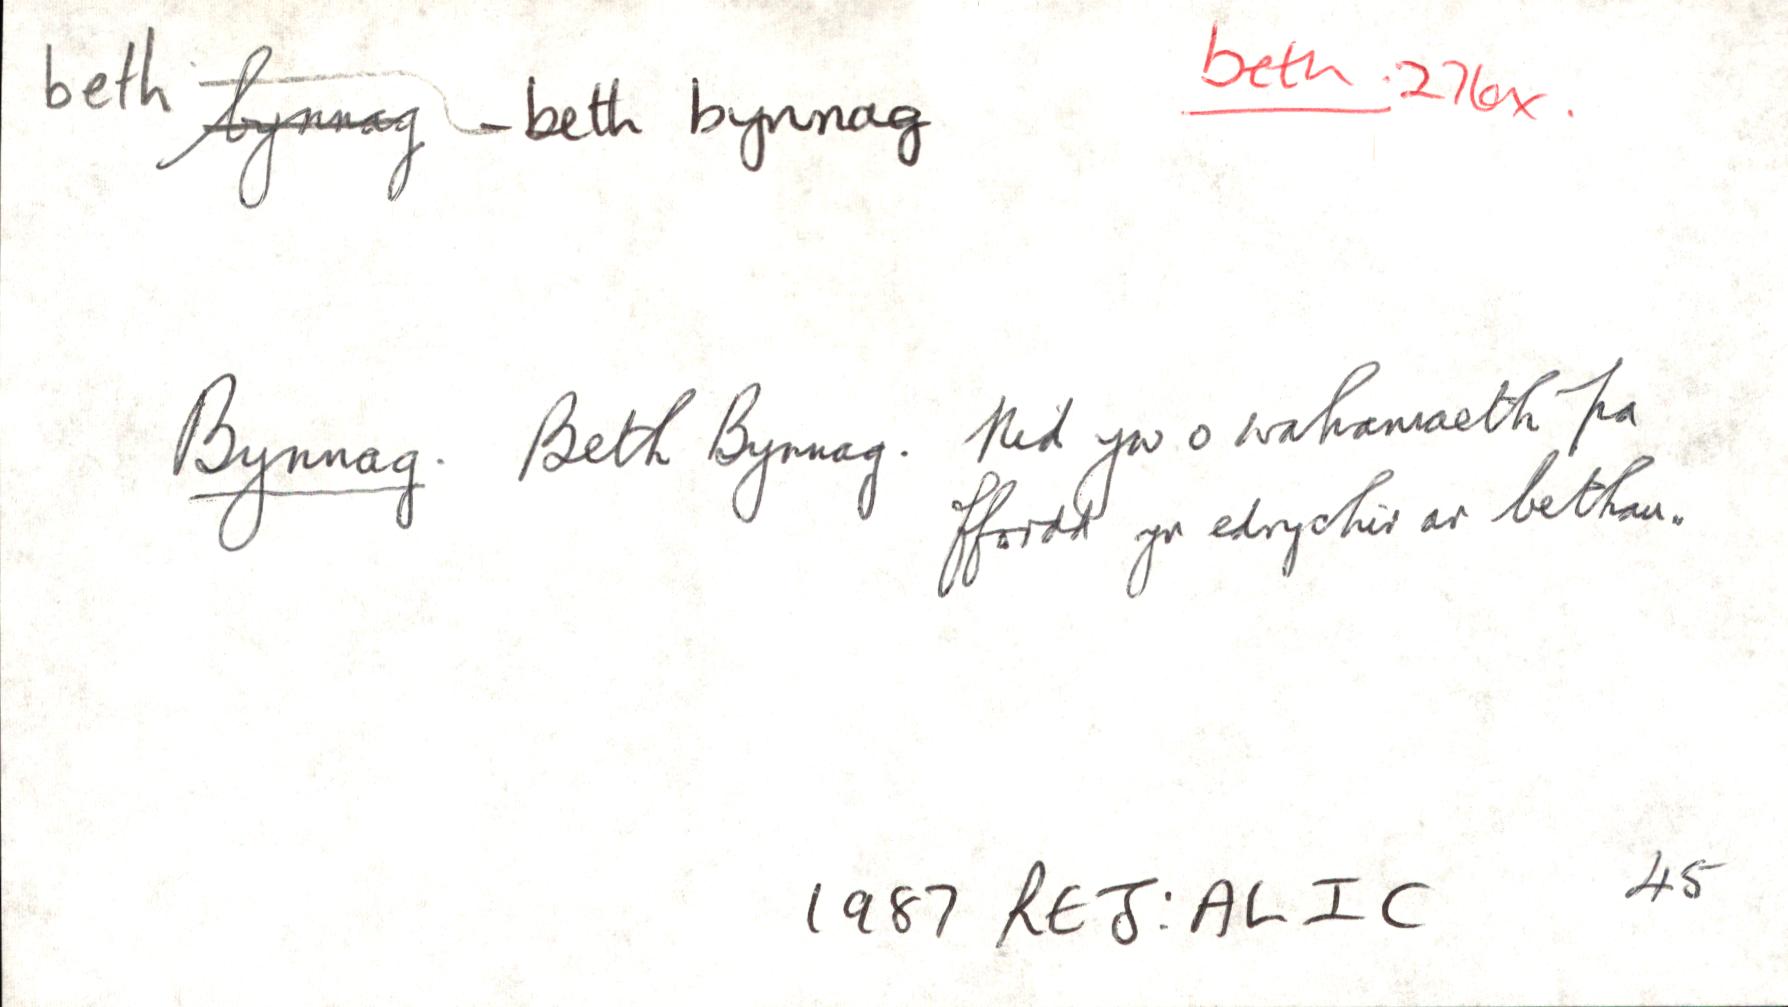 beth bynnag - beth bynnag
beth 276x.
Bynnag. Beth Bynnag. Nid yw o wahaniaeth pa
ffordd yr edrychir ar bethau.
1987 REJ: ALIC 45